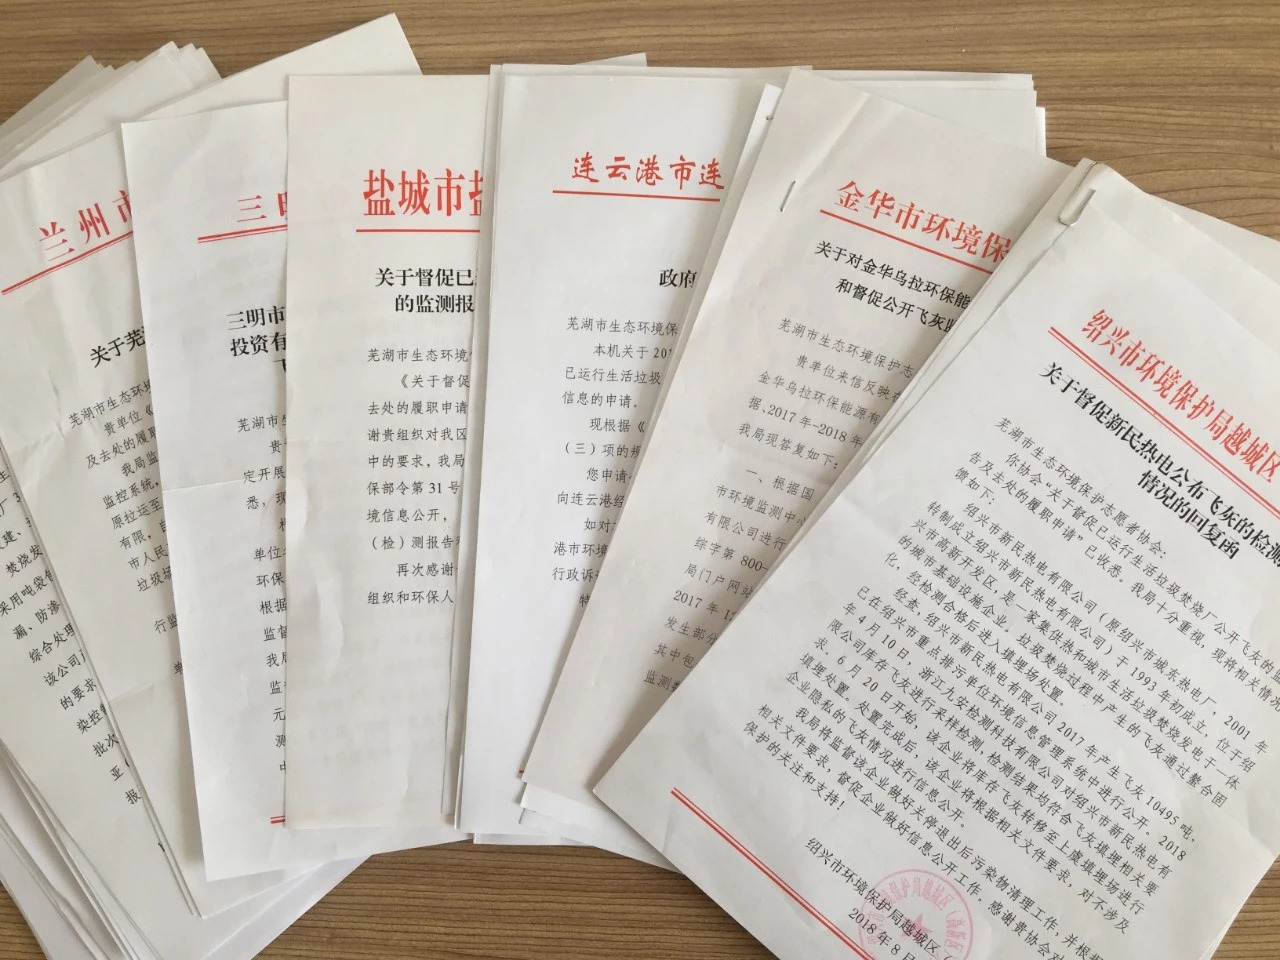 兰州市
关于芜
芜湖市生态环境
贵单位《
及去处的履职
我局监
监控系统，
原拉运至
有限，
市人民
垃圾场
行监
单
厂3
建、
焚烧发
采用吨袋
漏、防渗
综合处理
该公司
的要求
染控
批次
亚（
报
三明
三明市
投资有
芜湖市生
贵
定开展
悉，现
单位
环保
根据
监督
我局
监
元
测
盐城市盐
关于督促已
的监测报
芜湖市生态环境
《关于督促
去处的履职申请
谢贵组织对我区
中的要求，我局
保部令第31号
境信息公开，
（检）测报告
再次感谢
组织和环保人
连云港市连
政府
芜湖市生态环境保
本机关于201
已运行生活垃圾
信息的申请。
现根据《
（三）项的规
您申请
向连云港经
如对
港市环境
行政诉
特
金华市环境保
关于对金华乌拉环保能
和督促公开飞灰监
芜湖市生态环境保护志
贵单位来信反映
金华乌拉环保能源有
据、2017年~2018年
我局现答复如下：
一、根据国
市环境监测中心
有限公司进行
综字第 800-
局门户网站
2017年1
发生部分
其中包
监测
绍兴市环境保护局越城区
关于督促新民热电公布飞灰的检测
情况的回复函
芜湖市生态环境保护志愿者协会：
你协会“关于督促已运行生活垃圾焚烧厂公开飞灰的监
告及去处的履职申请”已收悉。我局十分重视，现将相关情况
馈如下：
绍兴市新民热电有限公司（原绍兴市城东热电厂，2001年
转制成立绍兴市新民热电有限公司）于1993年初成立，位于绍
兴市高新开发区，是一家集供热和城市生活垃圾焚烧发电于一体
的城市基础设施企业。垃圾焚烧过程中产生的飞灰通过螯合固
化，经检测合格后进入填埋场处置。
经查，绍兴市新民热电有限公司2017年产生飞灰10495吨，
已在绍兴市重点排污单位环境信息管理系统中进行公开。2018
年4月10日，浙江九安检测科技有限公司对绍兴市新民热电有
限公司库存飞灰进行采样检测，检测结果均符合飞灰填埋相关要
求。6月20日开始，该企业将库存飞灰转移至上虞填埋场进行
填埋处置。处置完成后，该企业将根据相关文件要求，对不涉及
企业隐私的飞灰情况进行信息公开。
我局将监督该企业做好关停退出后污染物清理工作，并根据
相关文件要求，督促企业做好信息公开工作。感谢贵协会对
保护的关注和支持！
绍兴市环境保护局越城区
2018年8